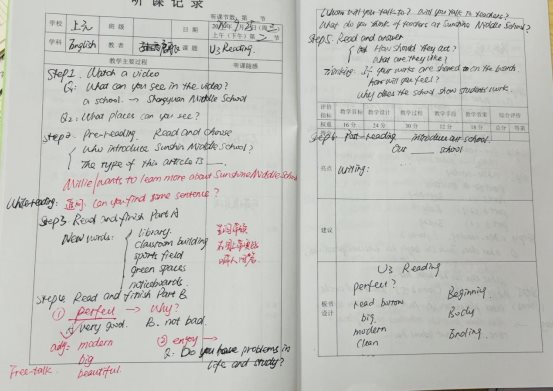 听课记录
听课节数：第 节
学校 上元 班级 日期
上午(下午)第 节
学科 English 教者 课题 U3 Reading
教学主要过程 听课随感
Step1. Watch a video
Q1: What can you see in the video?
a school. → Shangyuan Middle School
Q2: What places can you see?
Step2. Pre-reading. Read and choose
Who introduce Sunshine Middle School?
The type of this article is ___.
Millie wants to learn more about Sunshine Middle School
While-reading: 追问 Can you find some sentence?
Step3 Read and finish Part A
New words: library.
classroom building
sports field
green spaces
noticeboards.
Step4 Read and finish Part B
① perfect → Why?
A. Very good. B. not bad.
adj: modern
big
beautiful.
② enjoy
Q: Do you have problems in
life and study?
Free-talk.
Whom will you talk to? And why to teachers?
What do you think of teachers at Sunshine Middle School?
Step5. Read and answer
Q: How should they are?
What are they like?
Thinking: If your works are showed on the boards
How will you feel?
Why does the school show students' work
评价指标 教学目标 教学设计 教学过程 教学手段 教学效果 综合评价
权重 16分 24分 30分 12分 18分 总分 等第
Step6. Post-reading introduce our school
Our ___ school
亮点
Writing:
建议
板书设计
U3 Reading
perfect?
read button Beginning.
big Body
modern Ending.
clean